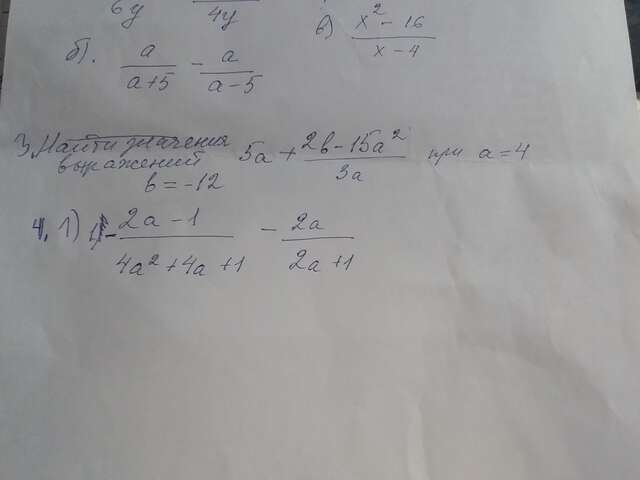 6y 4y
в) x² - 16 / x - 4
б). a / a+5 - a / a-5
3. Найти значения
выражений 5a + 2b - 15a² / 3a при a = 4
b = -12
4. 1) 2a - 1 / 4a² + 4a + 1 - 2a / 2a + 1